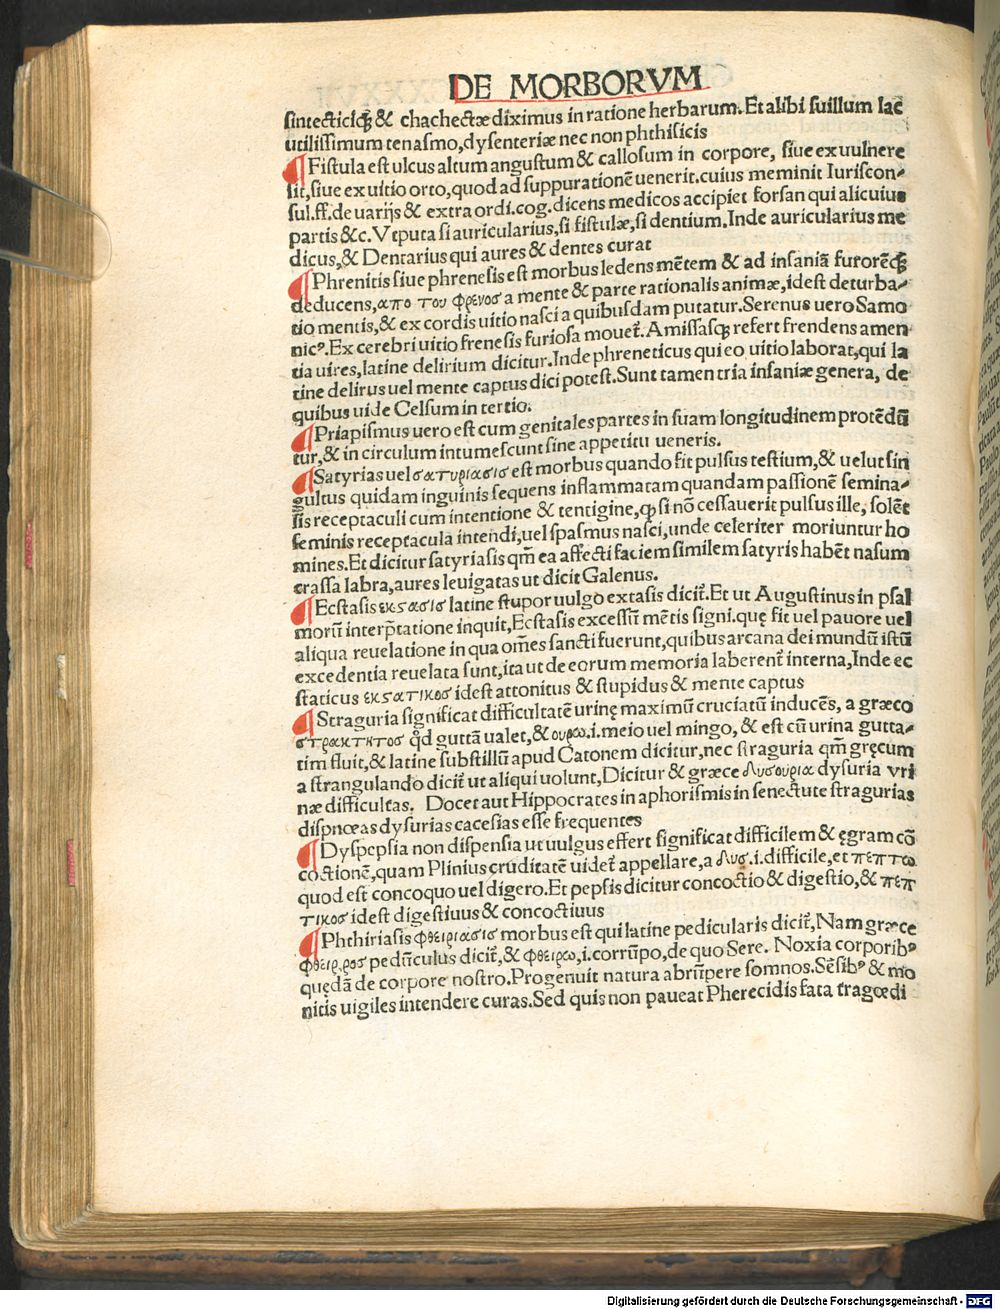 DE MORBORVM
sintecticiqꝫ & chachectæ diximus in ratione herbarum. Et alibi suillum lac
utilissimum tenasmo, dysenteriæ nec non phthisicis
¶ Fistula est ulcus altum angustum & callosum in corpore, siue ex uulnere
sit, siue ex uitio orto, quod ad suppurationē uenerit. cuius meminit Iuriscon⸗
sul. ff. de uarijs & extra ordi. cog. dicens medicos accipiet forsan qui alicuius
partis &c. Vtputa si auricularius, si fistulæ, si dentium. Inde auricularius me
dicus, & Dentarius qui aures & dentes curat
¶ Phrenitis siue phrenesis est morbus ledens mētem & ad insaniā furorēqꝫ
deducens, απο του φρενοσ a mente & parte rationalis animæ, idest deturba⸗
tio mentis, & ex cordis uitio nasci a quibusdam putatur. Serenus uero Samo
nicꝰ. Ex cerebri uitio frenesis furiosa mouet᷑. Amissasqꝫ refert frendens amen
tia uires, latine delirium dicitur. Inde phreneticus qui eo uitio laborat, qui la
tine delirus uel mente captus dici potest. Sunt tamen tria insaniæ genera, de
quibus uide Celsum in tertio.
¶ Priapismus uero est cum genitales partes in suam longitudinem protēdū
tur, & in circulum intumescunt sine appetitu ueneris.
¶ Satyrias uel σατυριασισ est morbus quando fit pulsus testium, & uelut sin
gultus quidam inguinis sequens inflammatam quandam passionē semina⸗
lis receptaculi cum intentione & tentigine, qꝫ si nō cessauerit pulsus ille, solēt
seminis receptacula intendi, uel spasmus nasci, unde celeriter moriuntur ho
mines. Et dicitur satyriasis qm̄ ea affecti faciem similem satyris habēt nasum
crassa labra, aures leuigatas ut dicit Galenus.
¶ Ecstasis εκσασισ latine stupor uulgo extasis dicit᷑. Et ut Augustinus in psal
morū interp̄tatione inquit, Ecstasis excessū mētis signi. quę fit uel pauore uel
aliqua reuelatione in qua om̄es sancti fuerunt, quibus arcana dei mundū istū
excedentia reuelata sunt, ita ut de eorum memoria laberent᷑ interna, Inde ec
staticus εκσατικοσ idest attonitus & stupidus & mente captus
¶ Straguria significat difficultatē urinę maximū cruciatū inducēs, a græco
στρακτητοσ qd̄ guttā ualet, & ουρω. i. meio uel mingo, & est cū urina gutta⸗
tim fluit, & latine substillū apud Catonem dicitur, nec straguria qm̄ gręcum
a strangulando dicit᷑ ut aliqui uolunt, Dicitur & græce δυσουρια dysuria vri
næ difficultas. Docet aut Hippocrates in aphorismis in senectute stragurias
dispnœas dysurias cacesias esse frequentes
¶ Dyspepsia non dispensia ut uulgus effert significat difficilem & ęgram cō
coctionē, quam Plinius cruditatē uidet᷑ appellare, a δυσ. i. difficile, et πεπτω
quod est concoquo uel digero. Et pepsis dicitur concoctio & digestio, & πεπ
τικοσ idest digestiuus & concoctiuus
¶ Phthiriasis φθειριασισ morbus est qui latine pedicularis dicit᷑, Nam græce
φθειρ, ροσ pedūculus dicit᷑, & φθειρω, i. corrūpo, de quo Sere. Noxia corporibꝰ
quędā de corpore nostro. Progenuit natura abrūpere somnos. Sēsibꝰ & mo
nitis uigiles intendere curas. Sed quis non paueat Pherecidis fata tragœdi
Digitalisierung gefördert durch die Deutsche Forschungsgemeinschaft - DFG